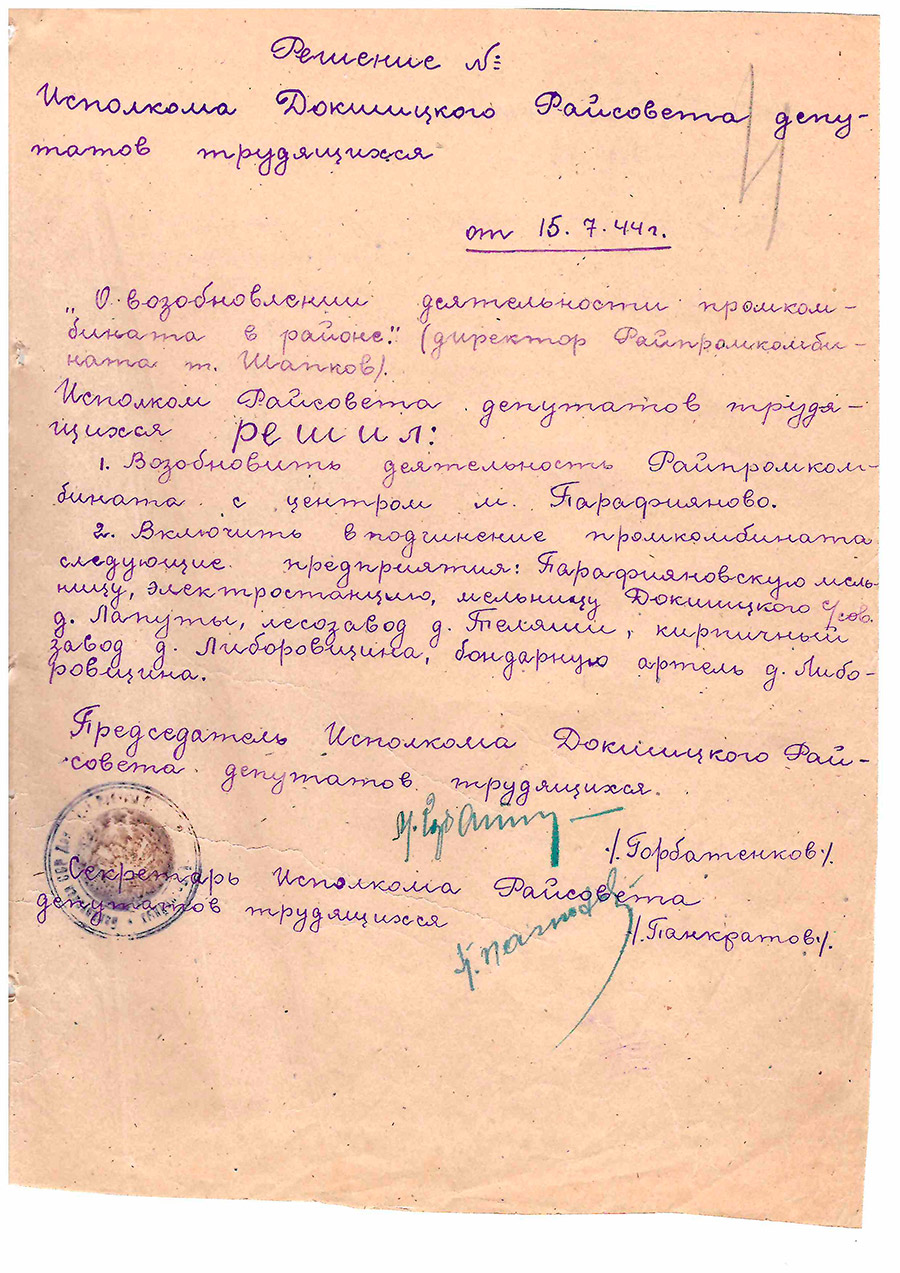 Решение №:
Исполкома Докшицкого Райсовета депу-
татов трудящихся
от 15.7.44г.
„О возобновлении деятельности промком-
бината в районе." (директор Райпромкомби-
ната т. Шапков).
Исполком Райсовета депутатов трудя-
щихся решил:
1. Возобновить деятельность Райпромком-
бината с центром м. Парафияново.
2. Включить в подчинение промкомбината
следующие предприятия: Парафияновскую мель-
ницу, электростанцию, мельницу Докшицкого с/сов.
д. Лапуты, лесозавод д. Теляши, кирпичный
завод д. Либоровщина, бондарную артель д. Либо-
ровщина.
Председатель Исполкома Докшицкого Рай-
совета депутатов трудящихся.
/.Горбатенков/.
Секретарь Исполкома Райсовета
депутатов трудящихся
/.Панкратов/.